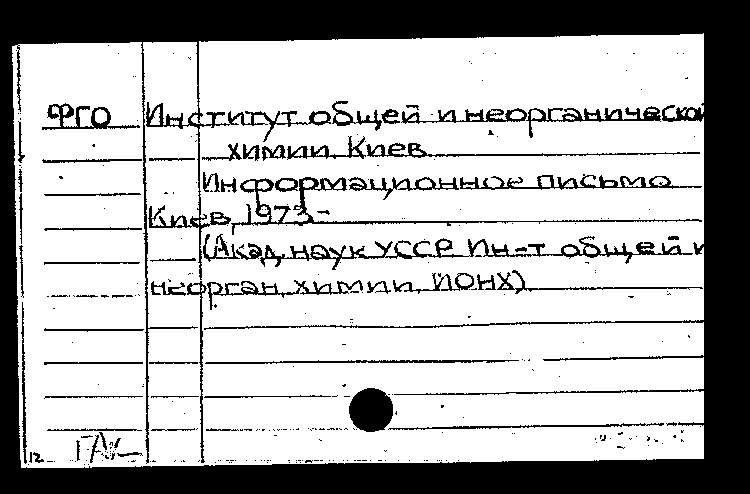 ФГО Институт общей и неорганической
химии. Киев.
Информационное письмо
Киев, 1973-
(Акад. наук УССР. Ин-т общей и
неорган. химии. ИОНХ).
12